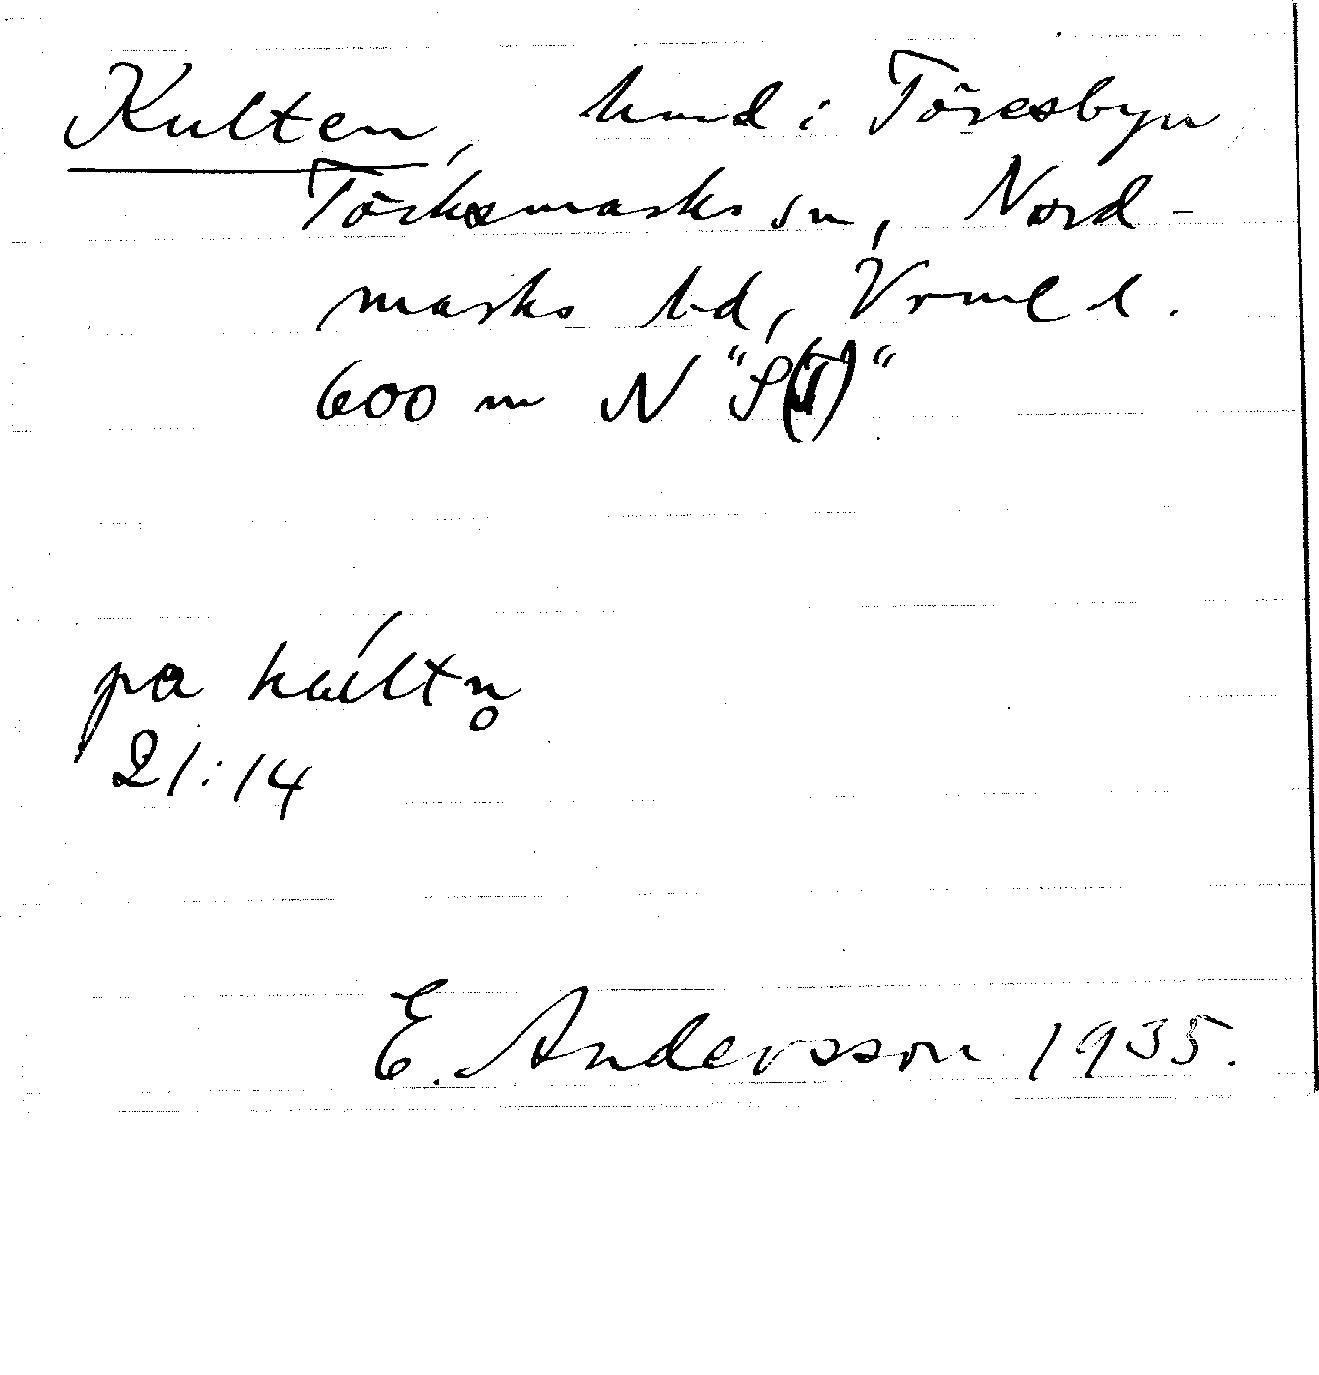 Kulten, lund i Töresbyn,
Töcksmarks sn, Nord-
marks hd, Vrml l.
600 m N "S(T)"
pa kúltn̥
21:14
E. Andersson 1935.